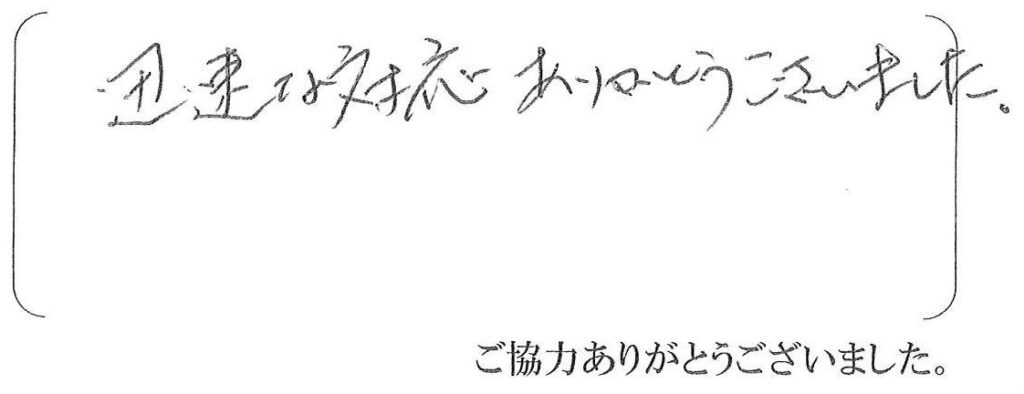 迅速な対応ありがとうございました。
ご協力ありがとうございました。